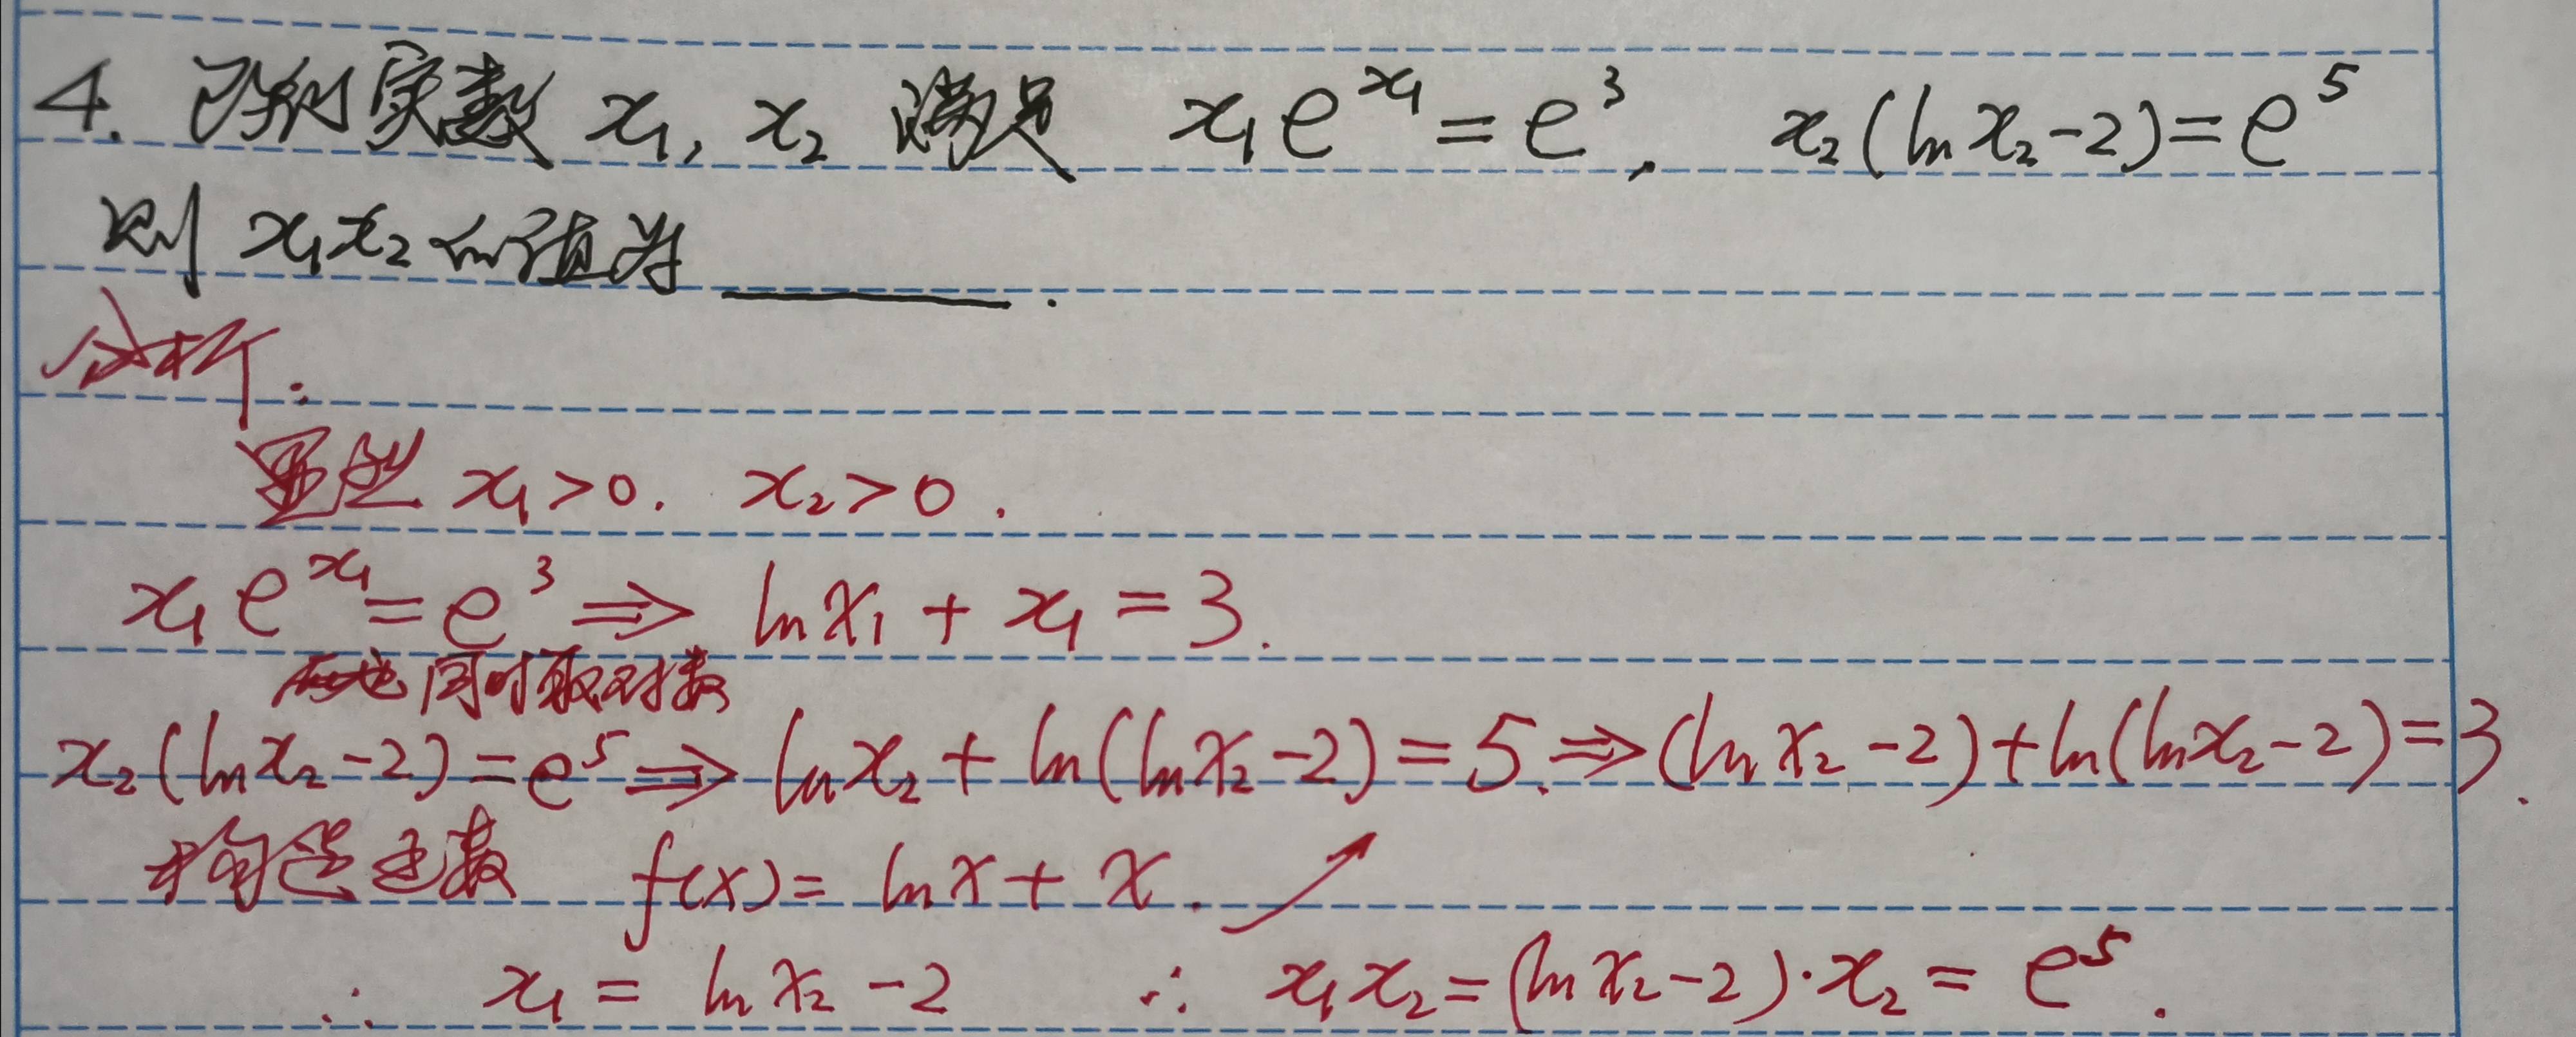 4. 已知实数 x₁, x₂ 满足 x₁e^{x₁} = e³, x₂(ln x₂ - 2) = e⁵
则 x₁x₂ 的值为 ______.
分析:
显然 x₁ > 0. x₂ > 0.
x₁e^{x₁} = e³ ⇒ ln x₁ + x₁ = 3.
左右同时取对数
x₂(ln x₂ - 2) = e⁵ ⇒ ln x₂ + ln(ln x₂ - 2) = 5. ⇒ (ln x₂ - 2) + ln(ln x₂ - 2) = 3.
构造函数 f(x) = ln x + x. ↗
∴ x₁ = ln x₂ - 2 ∴ x₁x₂ = (ln x₂ - 2)·x₂ = e⁵.